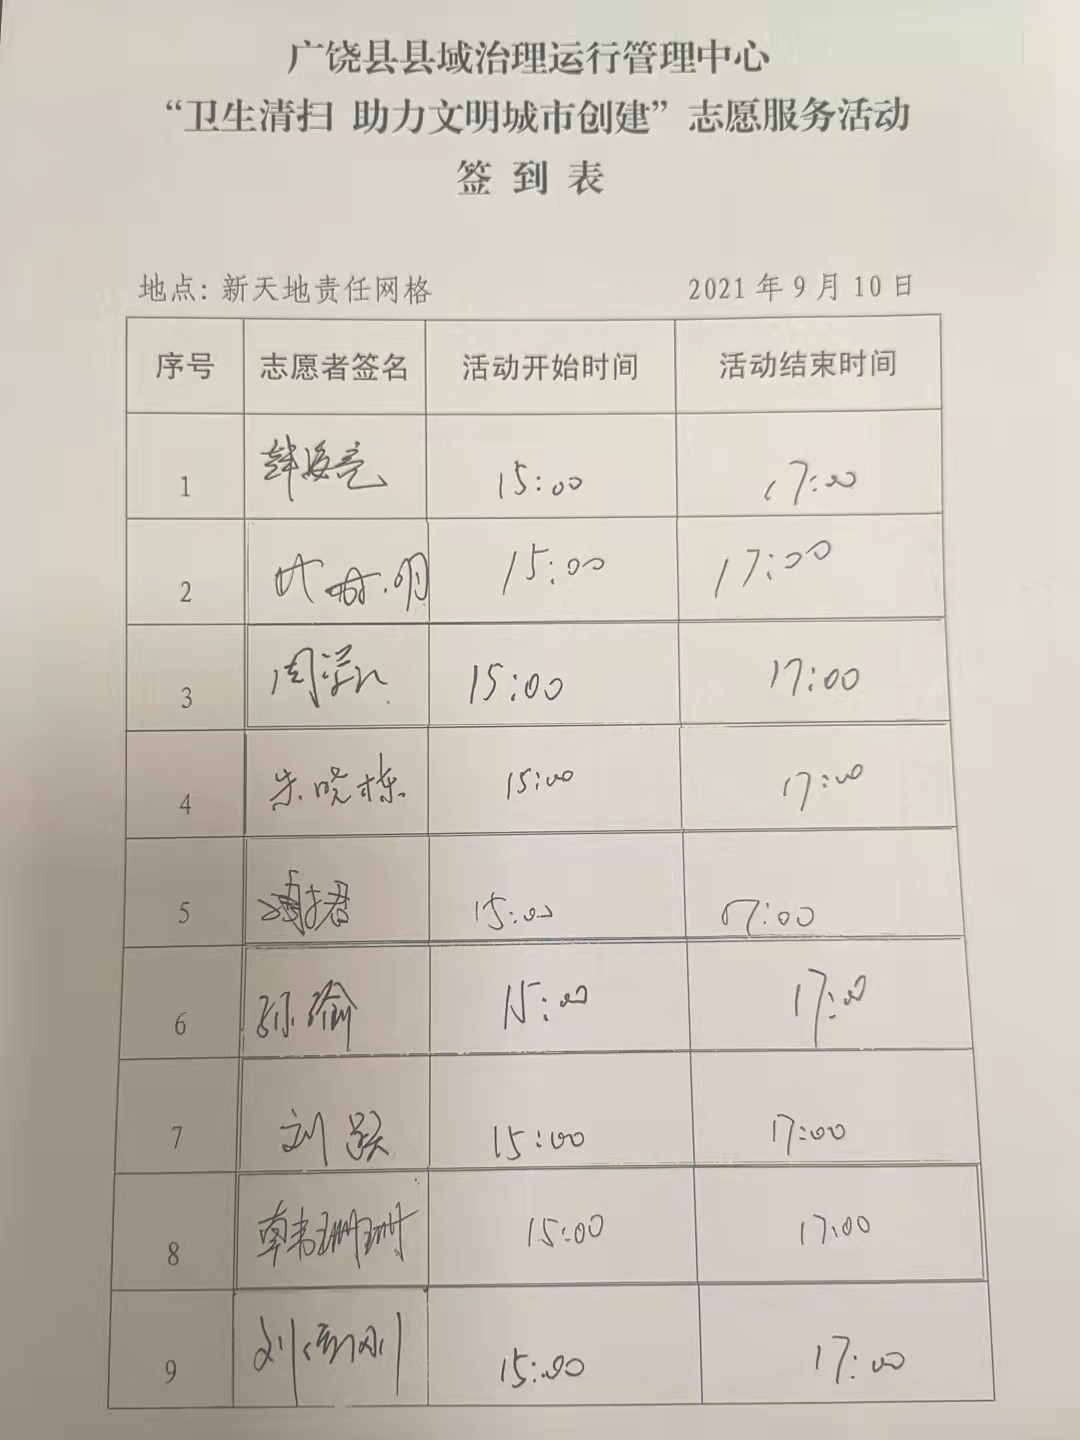 广饶县县域治理运行管理中心
“卫生清扫 助力文明城市创建”志愿服务活动
签 到 表
地点: 新天地责任网格 2021年9月10日
序号 志愿者签名 活动开始时间 活动结束时间
1 韩海亮 15:00 17:00
2 明 15:00 17:00
3 周 15:00 17:00
4 朱晓栋 15:00 17:00
5 君 15:00 17:00
6 孙瑜 15:00 17:00
7 刘 15:00 17:00
8 韩珊珊 15:00 17:00
9 刘 刚 15:00 17:00